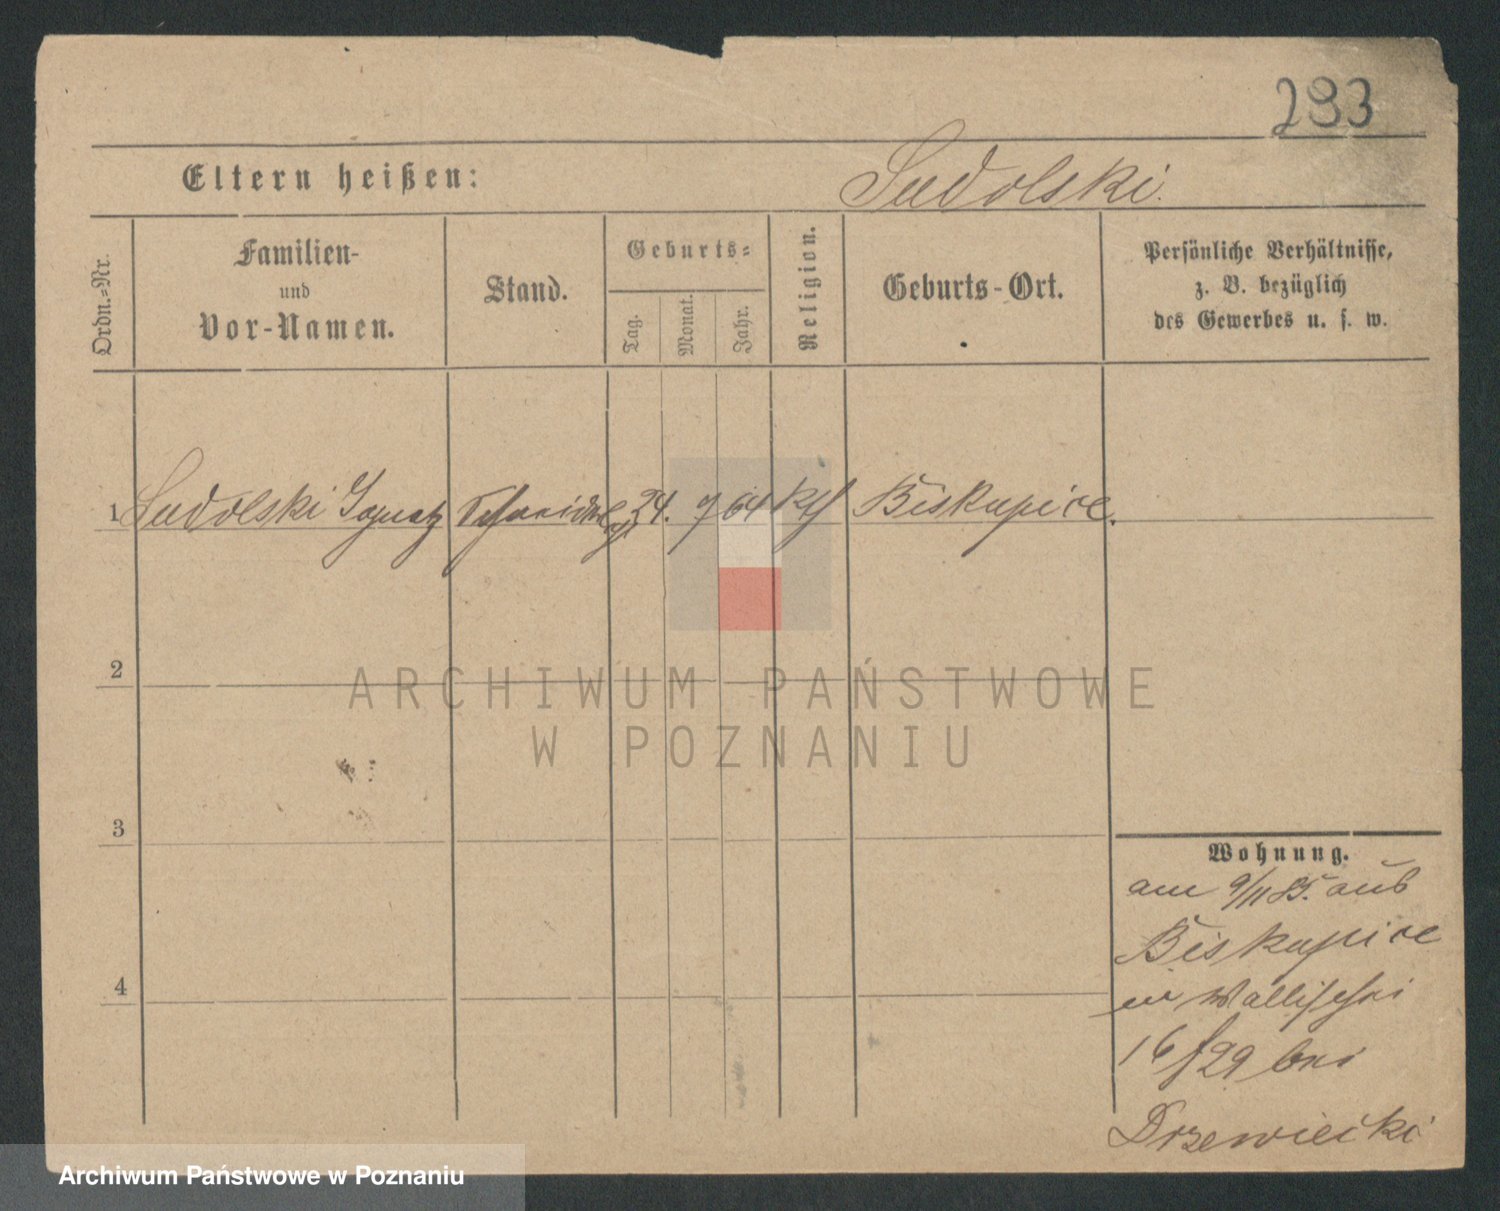 293
Eltern heißen: Sudolski.
Ordn.=Nr.
Familien-
und
Vor-Namen.
Stand.
Geburts=
Tag.
Monat.
Jahr.
Religion.
Geburts-Ort.
Persönliche Verhältnisse,
z. B. bezüglich
des Gewerbes u. s. w.
1 Sudolski Ignatz 24. 7 64 kth Biskupice.
2
3
4
Wohnung.
am 9/11 85. aus
Biskupice
Wallischei
16/29 bei
Drzewiecki
ARCHIWUM PAŃSTWOWE
W POZNANIU
Archiwum Państwowe w Poznaniu